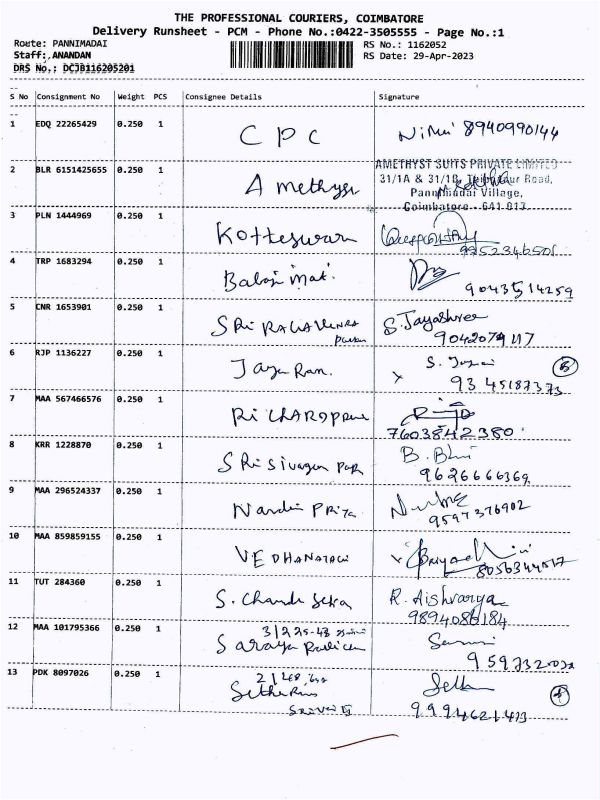 THE PROFESSIONAL COURIERS, COIMBATORE
Delivery Runsheet - PCM - Phone No.:0422-3505555 - Page No.:1
Route: PANNIMADAI
RS No.: 1162052
Staff: ANANDAN
RS Date: 29-Apr-2023
DRS No.: DCJB116205201
S No Consignment No Weight PCS Consignee Details Signature
1 EDQ 22265429 0.250 1 CPC 8940990144
2 BLR 6151425655 0.250 1 Amethyst
AMETHYST SUITS PRIVATE LIMITED
31/1A & 31/1B, Road,
Pannimadai Village,
Coimbatore - 641 017
3 PLN 1444969 0.250 1 Kotteswaran
9952346501
4 TRP 1683294 0.250 1 Balaji Mat.
9043514259
5 CNR 1653901 0.250 1 SRI RAGAVENRA S. Jayashree
9042079117
6 RJP 1136227 0.250 1 Jaya Ram. S.
x 9345187373
7 MAA 567466576 0.250 1
7603842380
8 KRR 1228870 0.250 1 SRi Sivagen B.
9626666369
9 MAA 296524337 0.250 1 Nandin PRiya
9597376902
10 MAA 859859155 0.250 1 VEDHANAYAGI
8056344517
11 TUT 284360 0.250 1 S. Chandr Sekra R. Aishvarya
9894086184
12 MAA 101795366 0.250 1
Saraya
13 PDK 8097026 0.250 1
Selh
9994621413